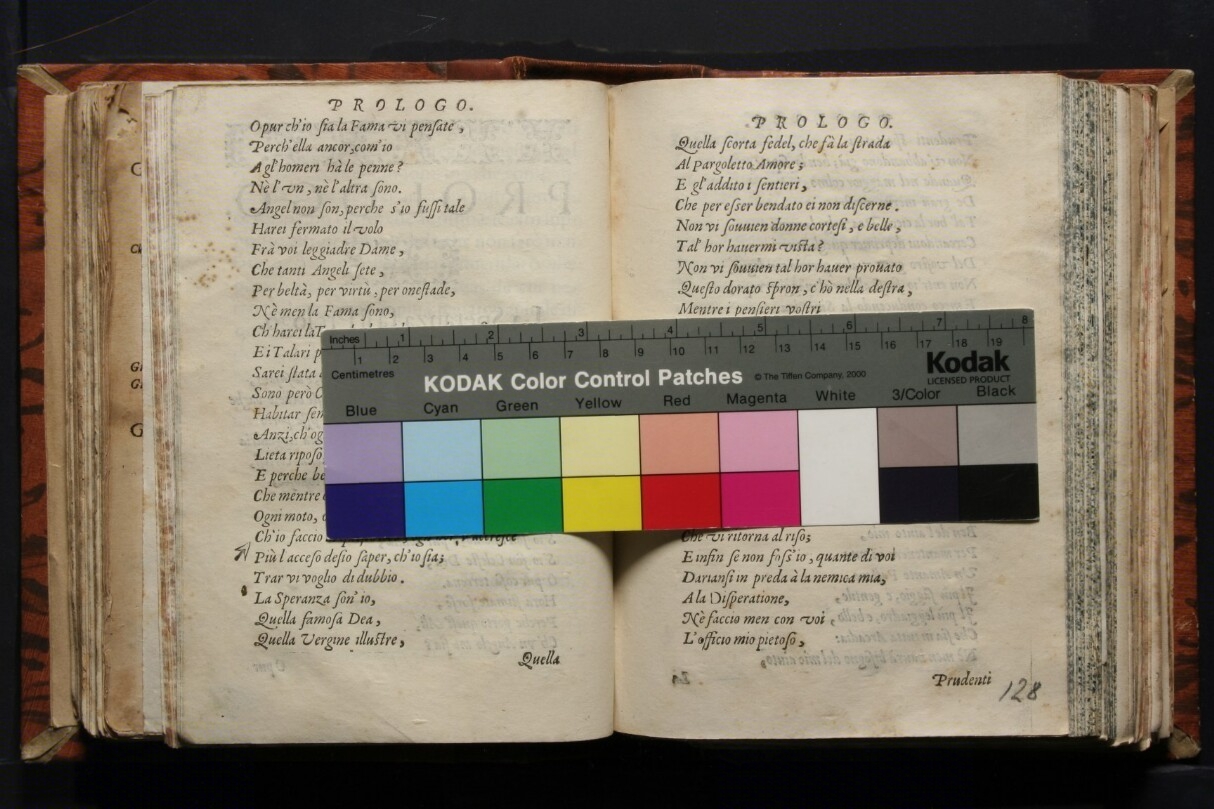 PROLOGO.
Opur ch'io sia la Fama vi pensate,
Perch'ella ancor, com'io
A gl'homeri hà le penne?
Nè l'vn, nè l'altra sono.
Angel non son, perche s'io fussi tale
Harei fermato il volo
Frà voi leggiadre Dame,
Che tanti Angeli sete,
Per beltà, per virtù, per onestade,
Nè men la Fama sono,
Ch'harei la
E i Talari
Sarei stata
Sono però
Habitar
Anzi, ch'og
Lieta riposo
E perche
Che mentre
Ogni moto,
Ch'io faccio
Più l'acceso desio saper, ch'io sia;
Trar vi voglio di dubbio.
La Speranza son' io,
Quella famosa Dea,
Quella Vergine illustre,
Quella
PROLOGO.
Quella scorta fedel, che fà la strada
Al Pargoletto Amore;
E gl'addito i sentieri,
Che per esser bendato ei non discerne.
Non vi souuien donne cortesi, e belle,
Tal' hor hauermi vista?
Non vi souuien tal hor hauer prouato
Questo dorato spron, c'hò nella destra,
Mentre i pensieri vostri
Inches 1 2 3 4 5 6 7 8
1 2 3 4 5 6 7 8 9 10 11 12 13 14 15 16 17 18 19
Centimetres
KODAK Color Control Patches © The Tiffen Company, 2000
Kodak
LICENSED PRODUCT
Blue Cyan Green Yellow Red Magenta White 3/Color Black
Che vi ritorna al riso;
E infin se non foss'io, quante di voi
Dariansi in preda à la nemica mia,
A la Disperatione,
Nè faccio men con voi,
L'officio mio pietoso,
Prudenti
128